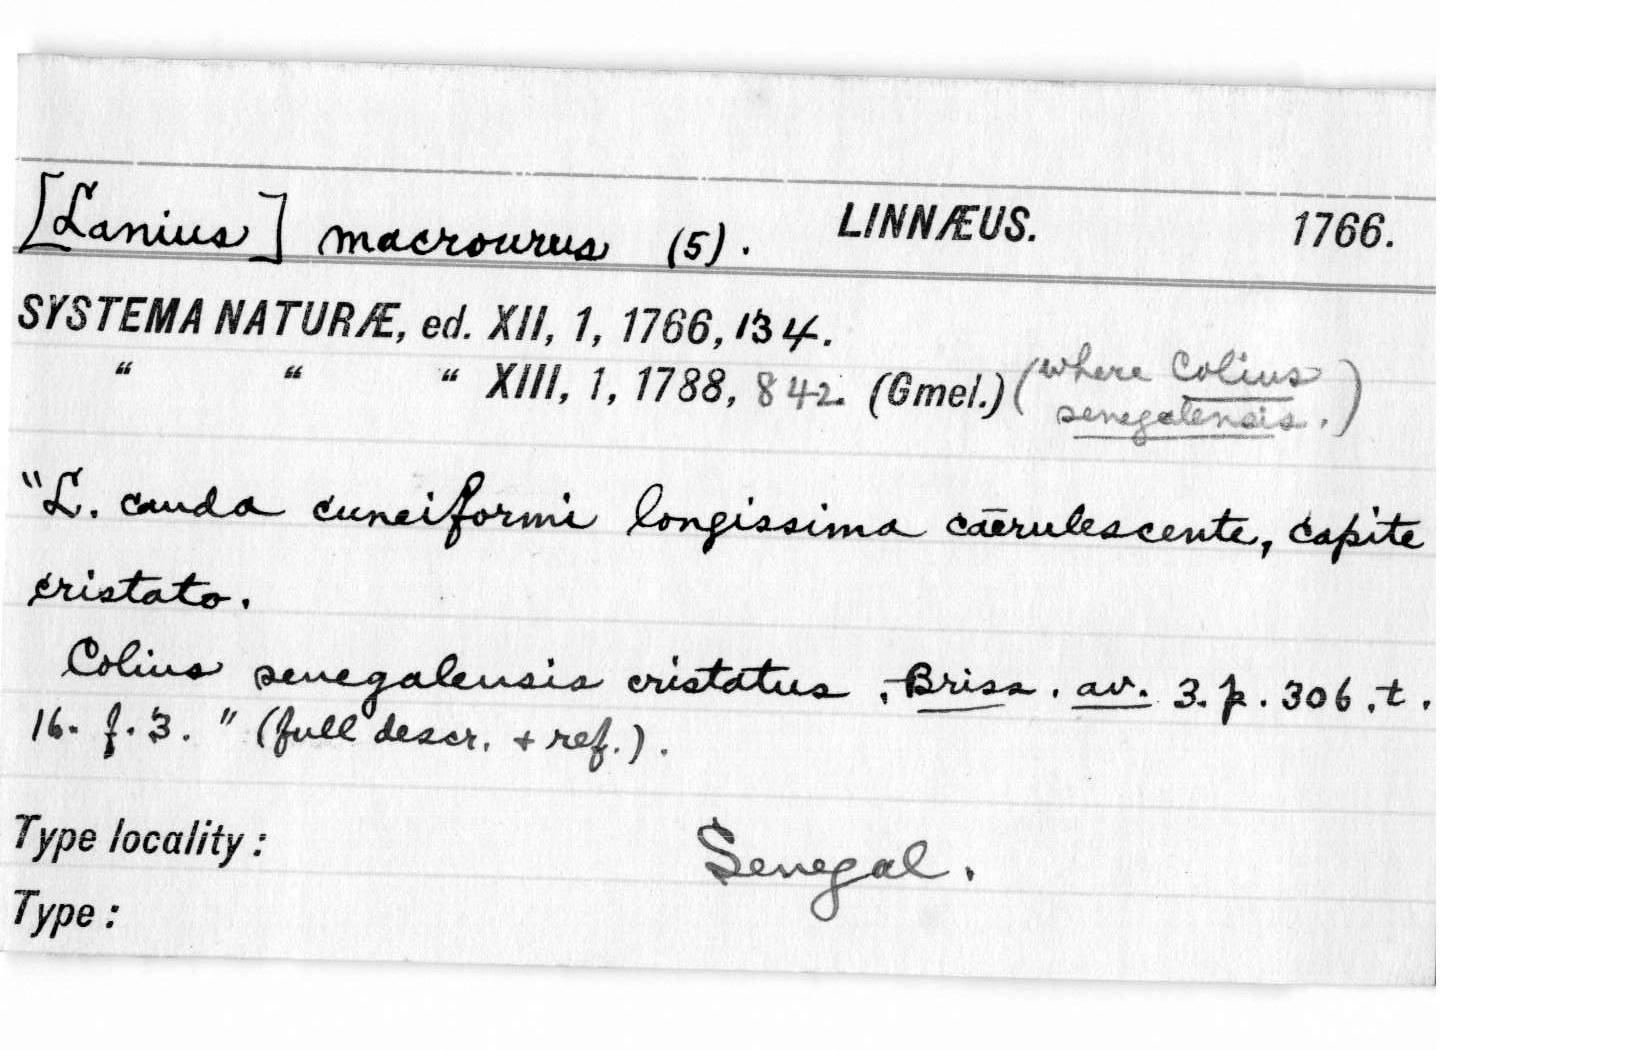 [Lanius] macrourus (5). LINNÆUS. 1766.
SYSTEMA NATURÆ, ed. XII, 1, 1766, 134.
“ “ “ XIII, 1, 1788, 842. (Gmel.) (where Colius
senegalensis.)
"L. cauda cuneiformi longissima caerulescente, capite
cristato.
Colius senegalensis cristatus. Briss. av. 3. p. 306. t.
16. f. 3." (full descr. + ref.).
Type locality: Senegal.
Type: